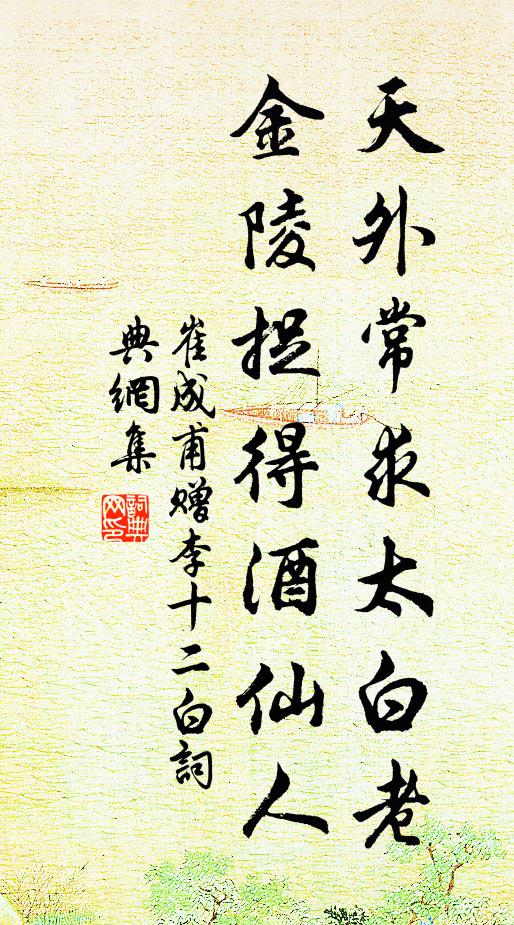 天外常求太白老
金陵捉得酒仙人
崔成甫贈李十二白詞
典網集
詞典網印